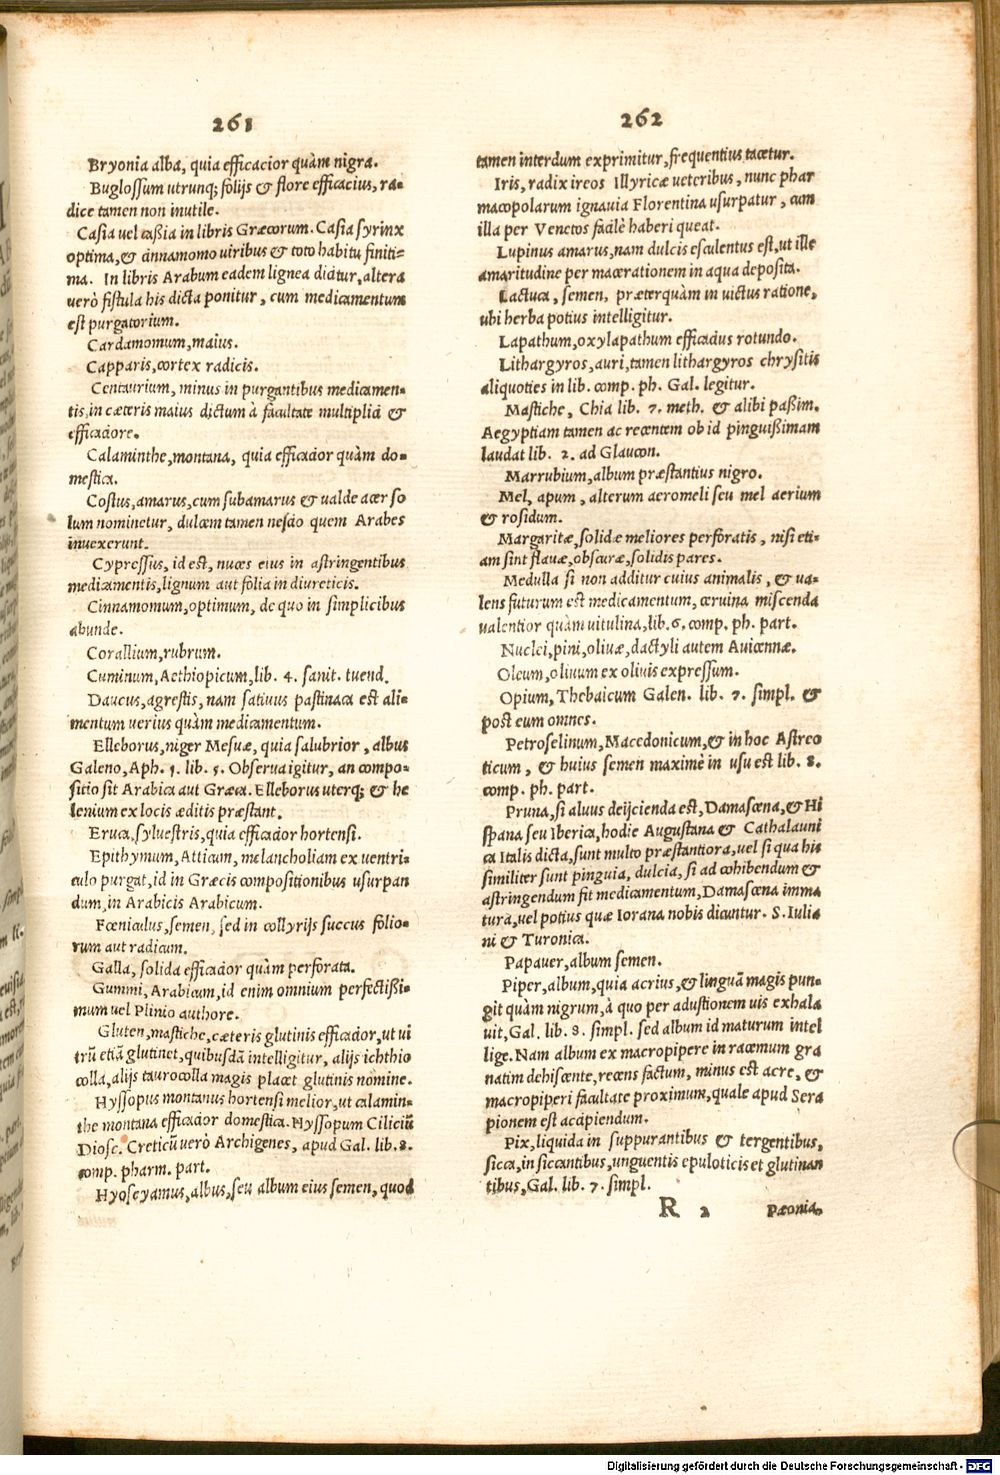 261
Bryonia alba, quia efficacior quàm nigra.
Buglossum utrunq; folijs & flore efficacius, ra-
dice tamen non inutile.
Casia uel caßia in libris Græcorum. Casia syrinx
optima, & cinnamomo uiribus & toto habitu finiti-
ma. In libris Arabum eadem lignea dicitur, altera
uerò fistula his dicta ponitur, cum medicamentum
est purgatorium.
Cardamomum, maius.
Capparis, cortex radicis.
Centaurium, minus in purgantibus medicamen-
tis, in cæteris maius dictum à facultate multiplici &
efficaciore.
Calaminthe, montana, quia efficacior quàm do-
mestica.
Costus, amarus, cum subamarus & ualde acer so
lum nominetur, dulcem tamen nescio quem Arabes
inuexerunt.
Cypressus, id est, nuces eius in astringentibus
medicamentis, lignum aut folia in diureticis.
Cinnamomum, optimum, de quo in simplicibus
abunde.
Corallium, rubrum.
Cuminum, Aethiopicum, lib. 4. sanit. tuend.
Daucus, agrestis, nam satiuus pastinaca est ali-
mentum uerius quàm medicamentum.
Elleborus, niger Mesuæ, quia salubrior, albus
Galeno, Aph. 1. lib. 5. Obserua igitur, an compo-
sitio sit Arabica aut Græca. Elleborus uterq; & he
lenium ex locis æditis præstant.
Eruca, syluestris, quia efficacior hortensi.
Epithymum, Atticum, melancholiam ex uentri-
culo purgat, id in Græcis compositionibus usurpan
dum, in Arabicis Arabicum.
Fœniculus, semen, sed in collyrijs succus folio-
rum aut radicum.
Galla, solida efficacior quàm perforata.
Gummi, Arabicum, id enim omnium perfectißi-
mum uel Plinio authore.
Gluten, mastiche, cæteris glutinis efficacior, ut ui
trū etiā glutinet, quibusdā intelligitur, alijs ichthio
colla, alijs taurocolla magis placet glutinis nomine.
Hyssopus montanus hortensi melior, ut calamin-
the montana efficacior domestica. Hyssopum Ciliciū
Diosc. Creticū uerò Archigenes, apud Gal. lib. 8.
comp. pharm. part.
Hyoscyamus, albus, seu album eius semen, quod
262
tamen interdum exprimitur, frequentius tacetur.
Iris, radix ireos Illyricæ ueteribus, nunc phar
macopolarum ignauia Florentina usurpatur, cum
illa per Venetos facilè haberi queat.
Lupinus amarus, nam dulcis esculentus est, ut ille
amaritudine per macerationem in aqua deposita.
Lactuca, semen, præterquàm in uictus ratione,
ubi herba potius intelligitur.
Lapathum, oxylapathum efficacius rotundo.
Lithargyros, auri, tamen lithargyros chrysitis
aliquoties in lib. comp. ph. Gal. legitur.
Mastiche, Chia lib. 7. meth. & alibi paßim.
Aegyptiam tamen ac recentem ob id pinguißimam
laudat lib. 2. ad Glaucon.
Marrubium, album præstantius nigro.
Mel, apum, alterum aeromeli seu mel aerium
& rosidum.
Margaritæ, solidæ meliores perforatis, nisi eti-
am sint flauæ, obscuræ, solidis pares.
Medulla si non additur cuius animalis, & ua-
lens futurum est medicamentum, ceruina miscenda
ualentior quàm uitulina, lib. 6. comp. ph. part.
Nuclei, pini, oliuæ, dactyli autem Auicennæ.
Oleum, oliuum ex oliuis expressum.
Opium, Thebaicum Galen. lib. 7. simpl. &
post eum omnes.
Petroselinum, Macedonicum, & in hoc Astreo
ticum, & huius semen maximè in usu est lib. 8.
comp. ph. part.
Pruna, si aluus deijcienda est, Damascena, & Hi
spana seu Iberica, hodie Augustana & Cathalauni
ca Italis dicta, sunt multo præstantiora, uel si qua his
similiter sunt pinguia, dulcia, si ad cohibendum &
astringendum fit medicamentum, Damascena imma
tura, uel potius quæ Iorana nobis dicuntur. S. Iulia
ni & Turonica.
Papauer, album semen.
Piper, album, quia acrius, & linguā magis pun-
git quàm nigrum, à quo per adustionem uis exhala
uit, Gal. lib. 8. simpl. sed album id maturum intel
lige. Nam album ex macropipere in racemum gra
natim dehiscente, recens factum, minus est acre, &
macropiperi facultate proximum, quale apud Sera
pionem est accipiendum.
Pix, liquida in suppurantibus & tergentibus,
sicca, in siccantibus, unguentis epuloticis et glutinan
tibus, Gal. lib. 7. simpl.
R 2 Pæonia,
Digitalisierung gefördert durch die Deutsche Forschungsgemeinschaft - DFG